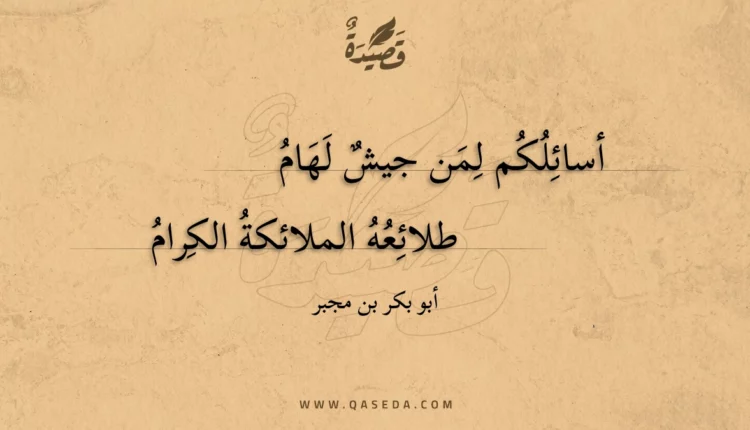 قَصِيدَةٌ
أسائِلُكُم لِمَن جيشٌ لَهَامُ
طلائِعُهُ الملائكةُ الكِرامُ
أبو بكر بن مجبر
WWW.QASEDA.COM